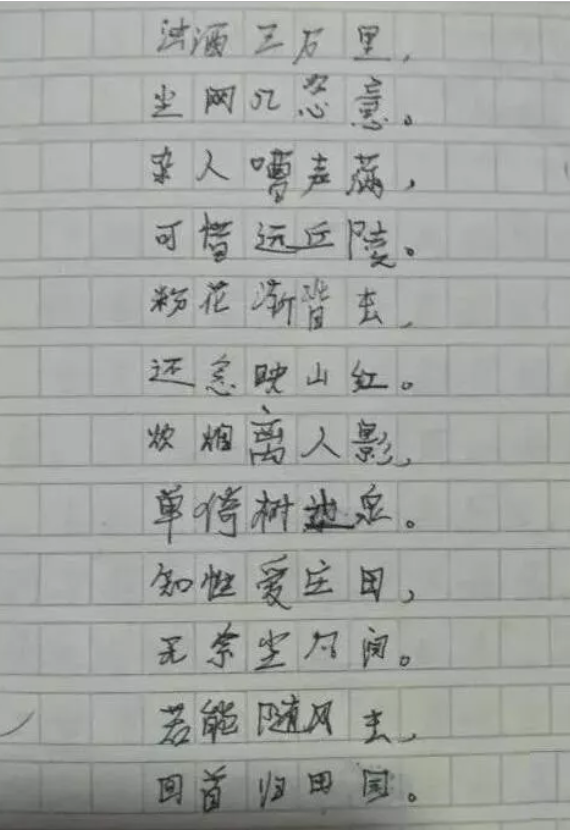 洪酒三万里,
尘网几忽意。
杂人嘈声满,
可惜远丘陵。
粉花渐皆去,
还急映山红。
炊烟离人影,
单倚树边泉。
知性爱庄田,
无奈尘俗间。
若能随风去,
回首归田园。